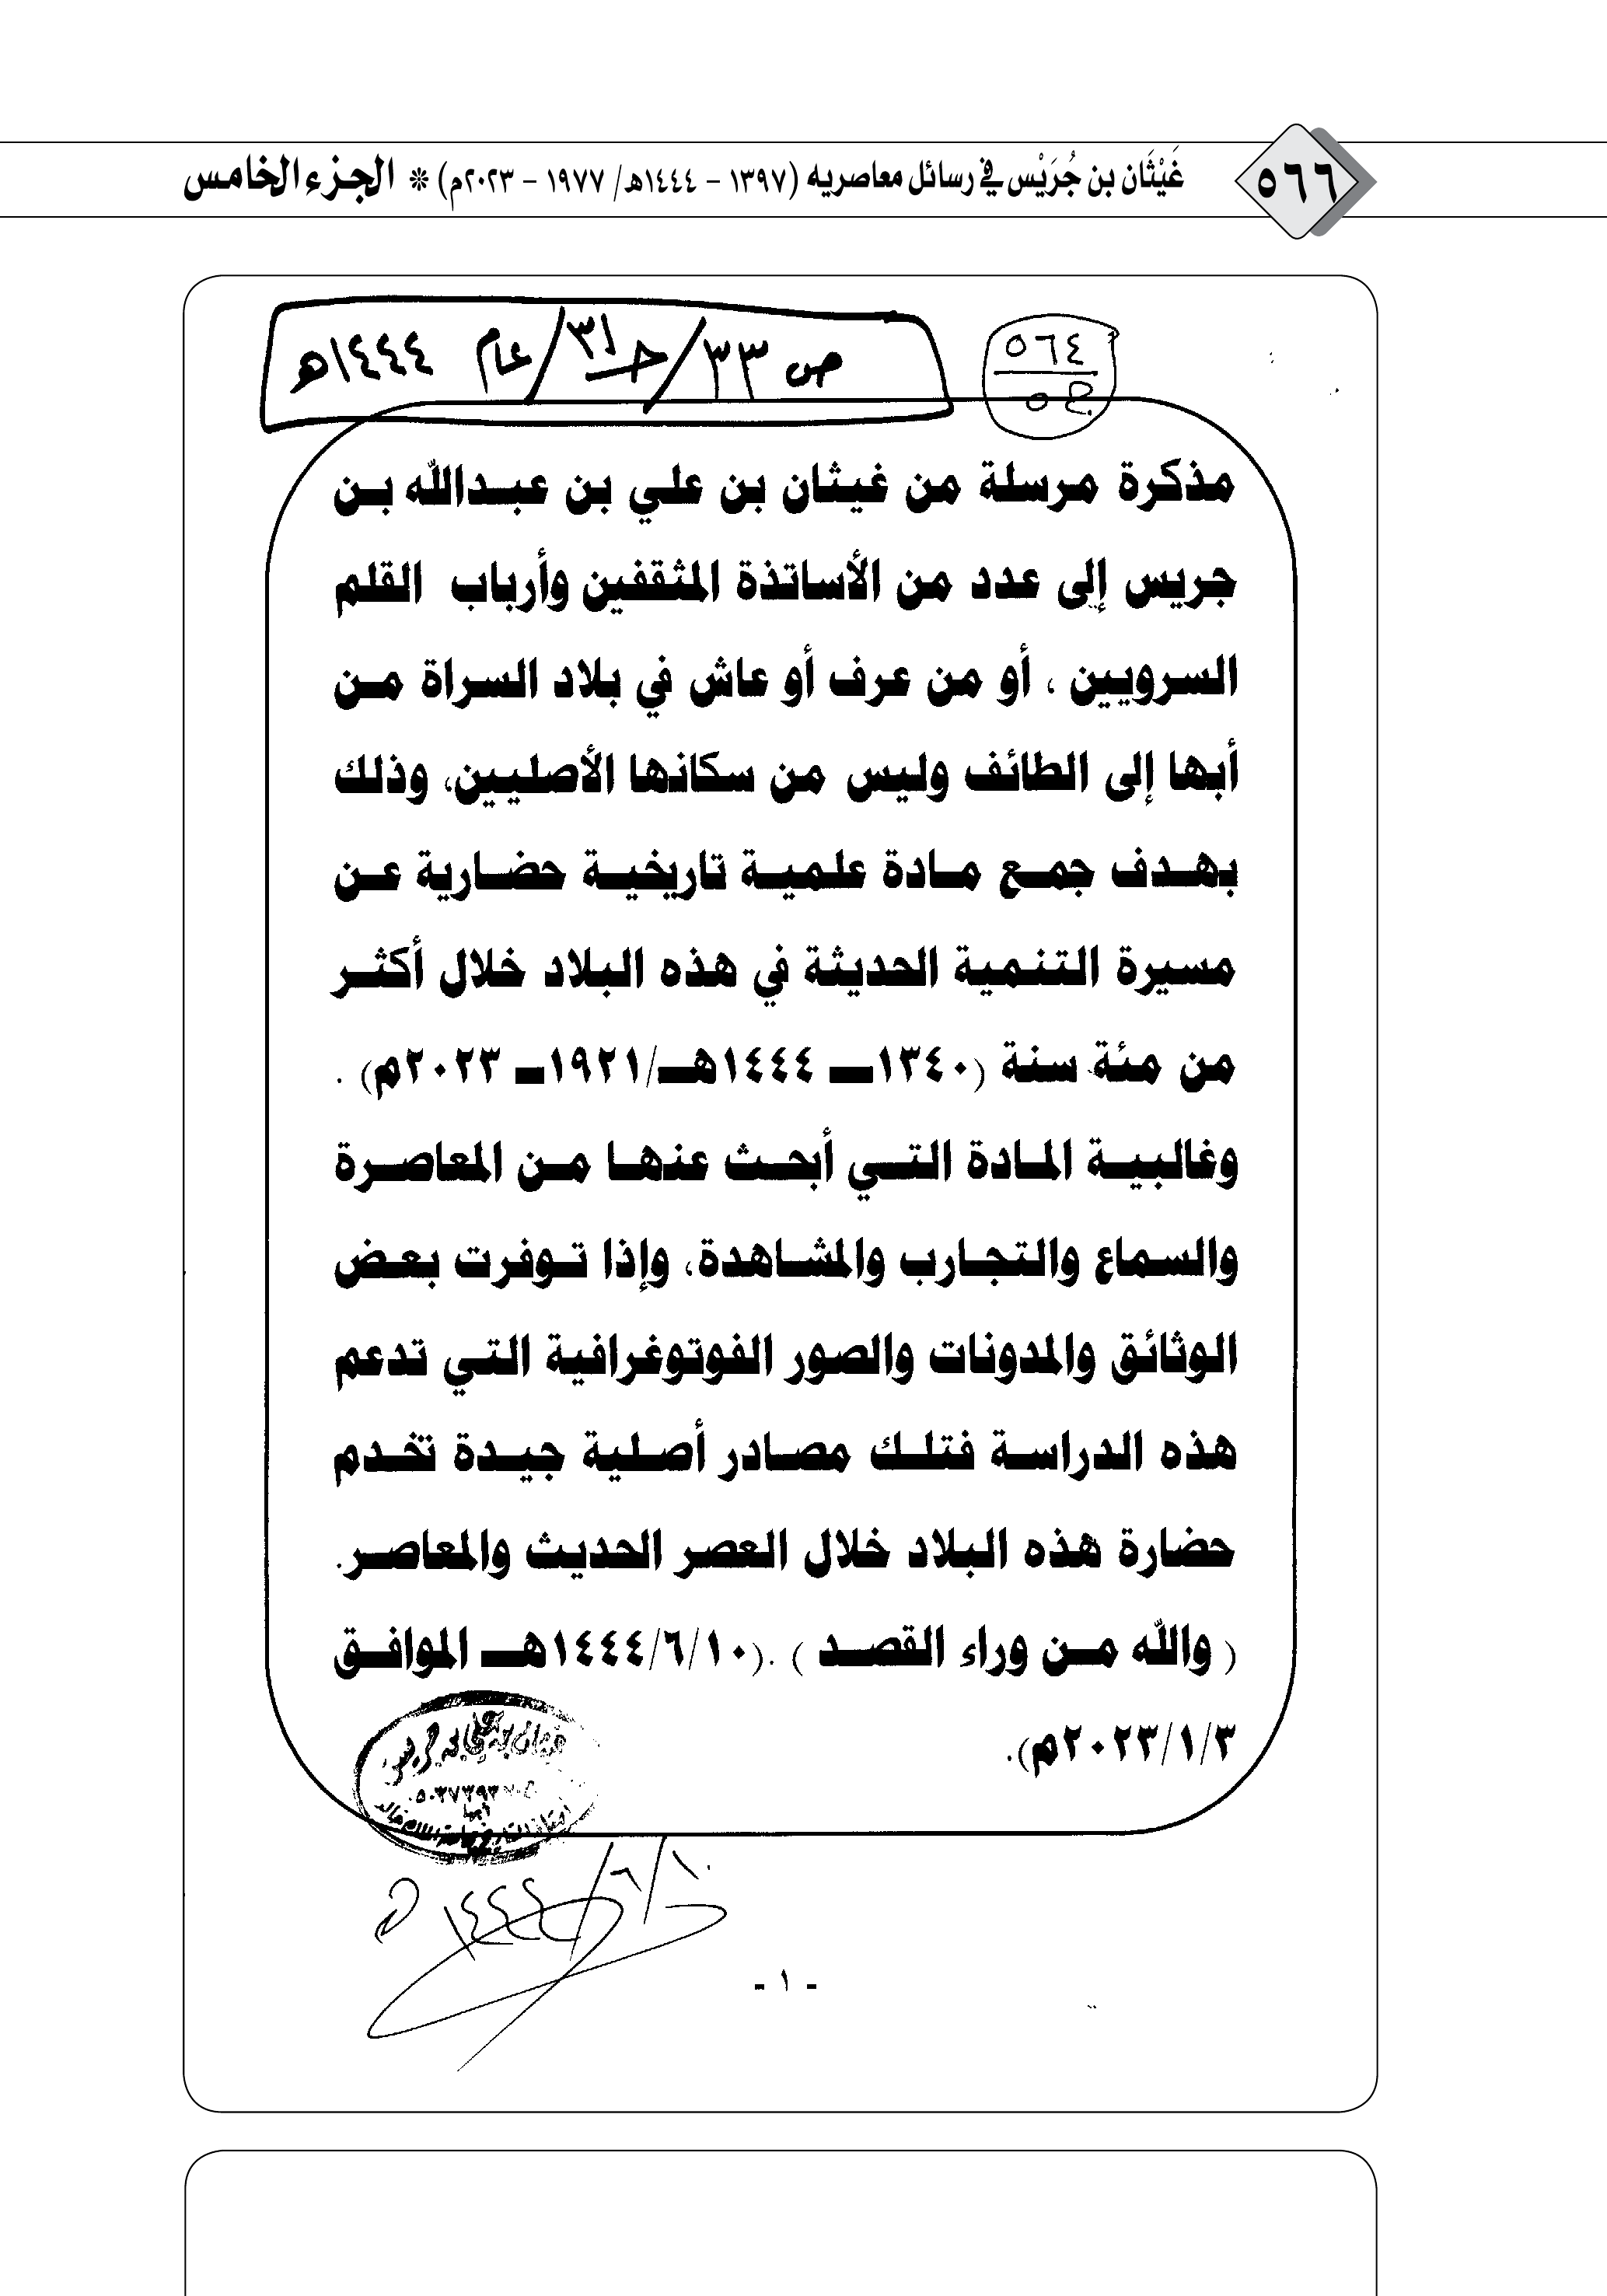 ٥٦٦
غَيْثَان بن جُرَيْس في رسائل معاصريه (١٣٩٧ - ١٤٤٤هـ/ ١٩٧٧ - ٢٠٢٣م) * الجزء الخامس
٥٦٤
ج٥
ص ٣٣/ جـ٣١/ عام ١٤٤٤هـ
مذكرة مرسلة من غيثان بن علي بن عبدالله بن
جريس إلى عدد من الأساتذة المثقفين وأرباب القلم
السرويين ، أو من عرف أو عاش في بلاد السراة من
أبها إلى الطائف وليس من سكانها الأصليين، وذلك
بهدف جمع مادة علمية تاريخية حضارية عن
مسيرة التنمية الحديثة في هذه البلاد خلال أكثر
من مئة سنة (١٣٤٠ـ ١٤٤٤هـ/١٩٢١ـ ٢٠٢٣م) .
وغالبية المادة التي أبحث عنها من المعاصرة
والسماع والتجارب والمشاهدة، وإذا توفرت بعض
الوثائق والمدونات والصور الفوتوغرافية التي تدعم
هذه الدراسة فتلك مصادر أصلية جيدة تخدم
حضارة هذه البلاد خلال العصر الحديث والمعاصر.
( والله من وراء القصد ) .(١٤٤٤/٦/١٠هـ الموافق
٢٠٢٣/١/٣م).
غيثان بن علي بن جريس
أبها
١٤٤٤/٦/١٠هـ
- ١ -